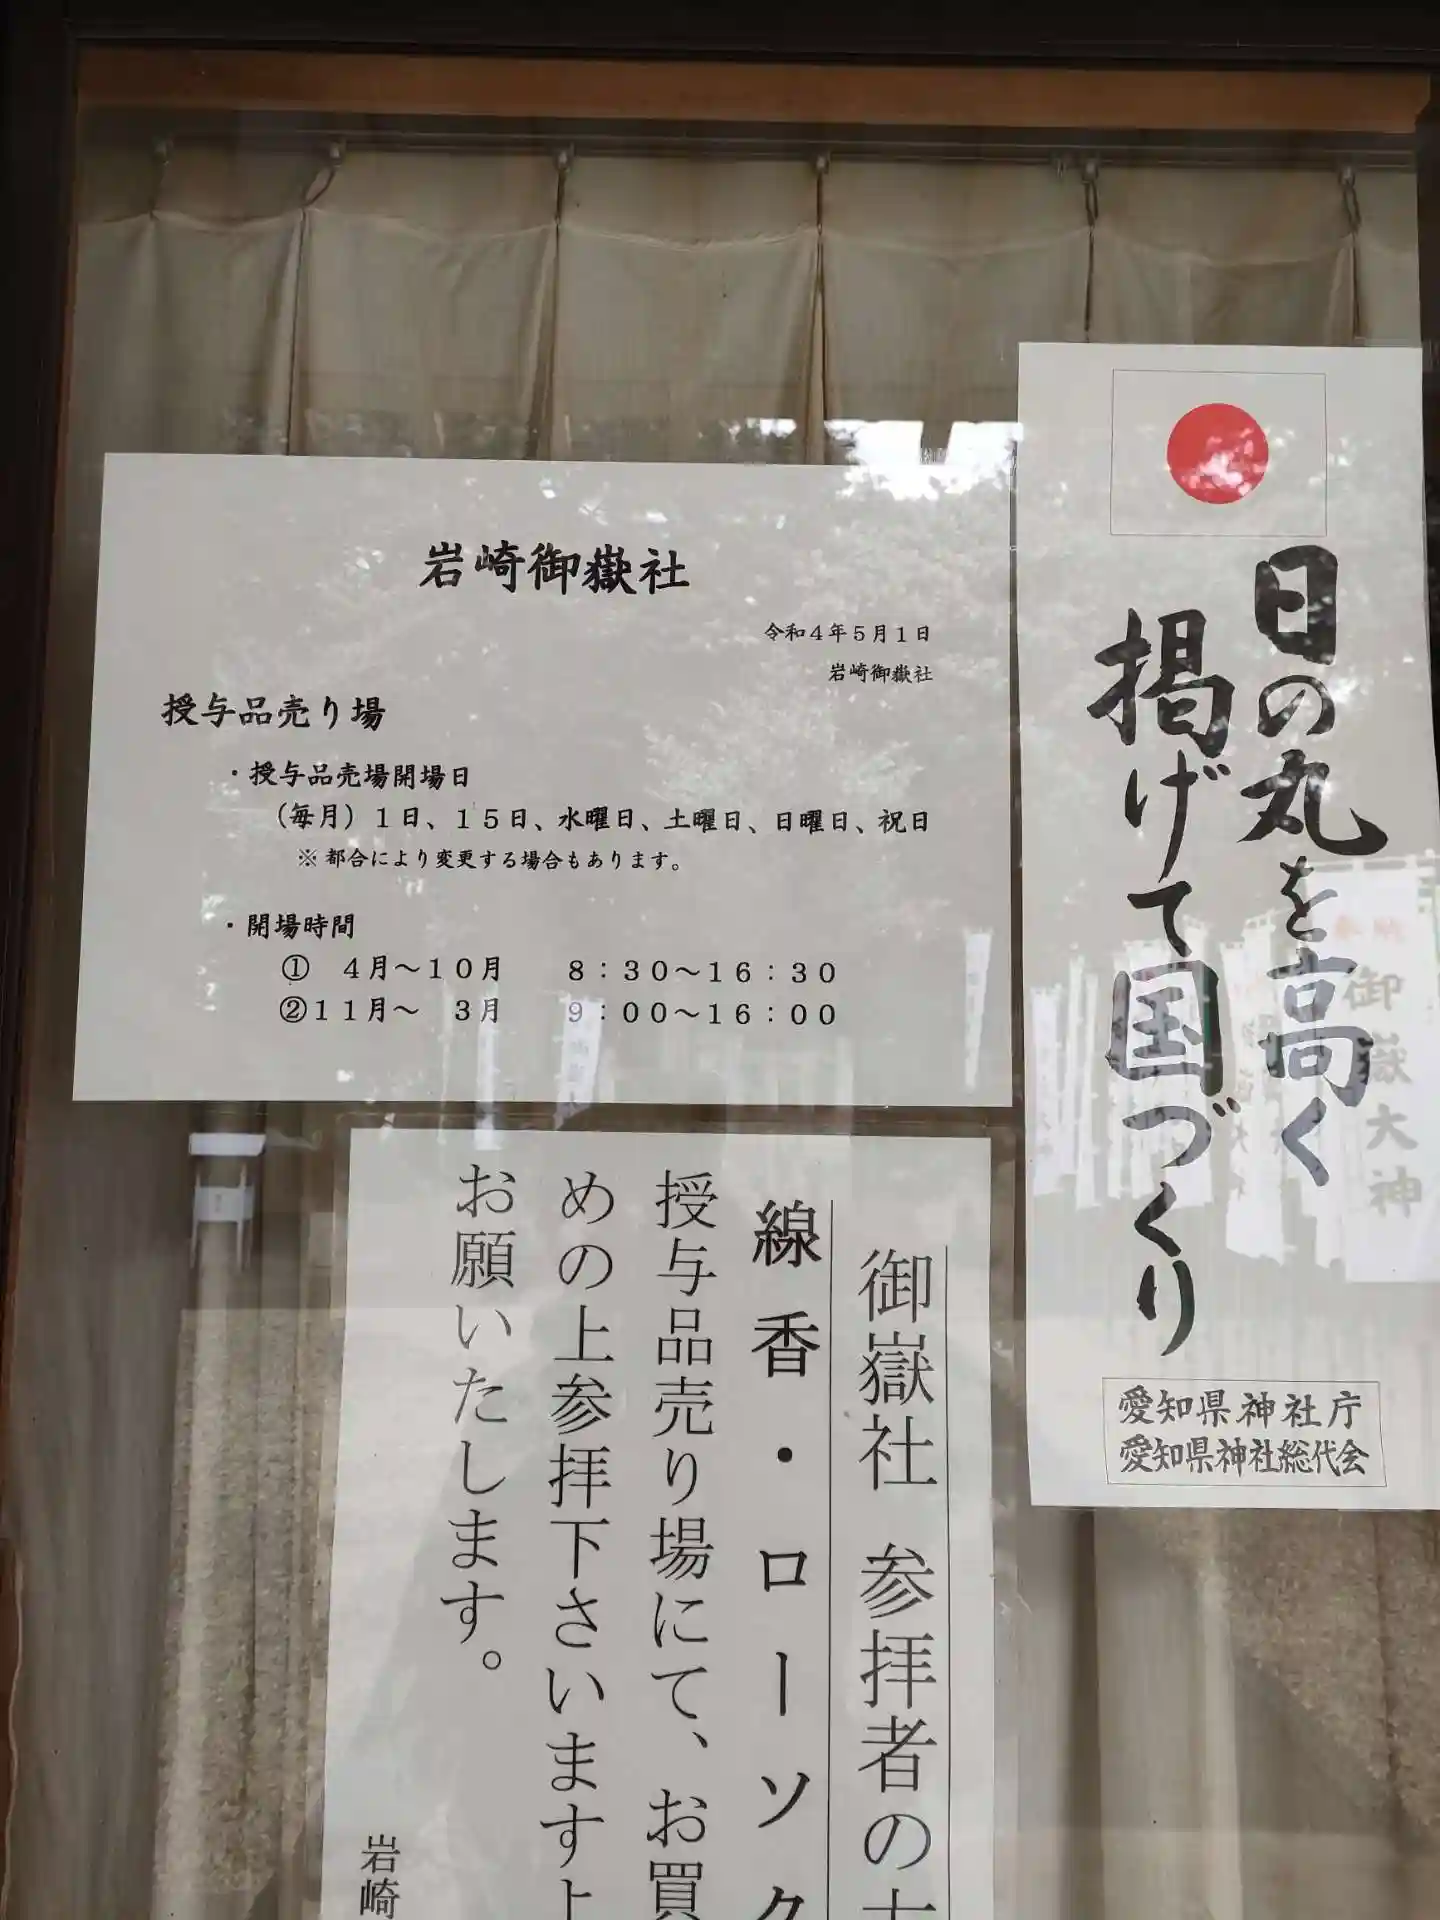 岩崎御嶽社
令和４年５月１日
岩崎御嶽社
授与品売り場
・授与品売場開場日
（毎月）１日、１５日、水曜日、土曜日、日曜日、祝日
※都合により変更する場合もあります。
・開場時間
①　４月～１０月　　８：３０～１６：３０
②１１月～　３月　　９：００～１６：００
日の丸を高く
掲げて国づくり
愛知県神社庁
愛知県神社総代会
御嶽社 参拝者の
線香・ローソク
授与品売り場にて、お買
めの上参拝下さいます
お願いいたします。
岩崎
御嶽大神